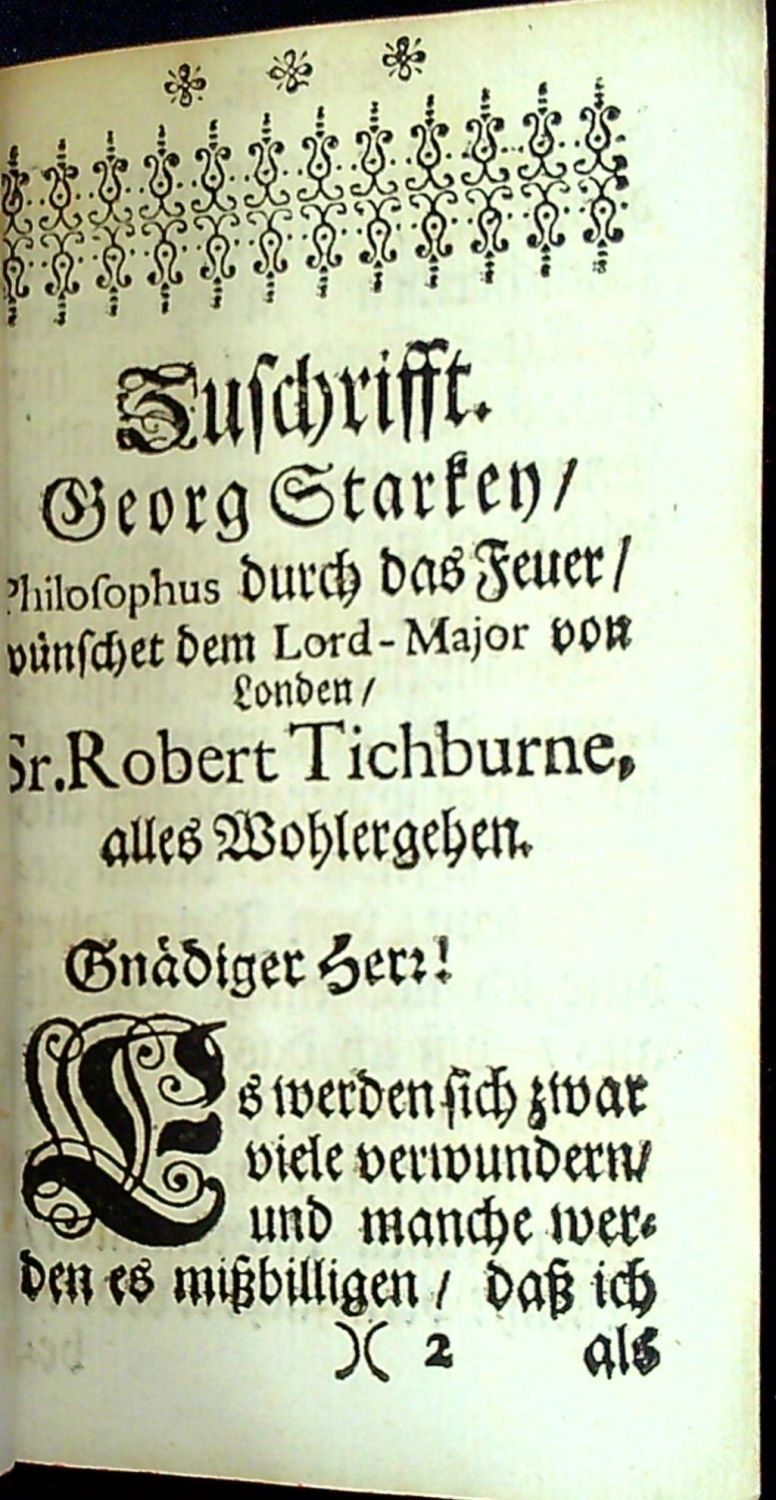 Zuschrifft.
Georg Starkey/
Philosophus durch das Feuer/
wünschet dem Lord-Major von
Londen/
Sr. Robert Tichburne,
alles Wohlergehen.
Gnädiger Herr!
Es werden sich zwar
viele verwundern/
und manche wer-
den es mißbilligen / daß ich
)( 2 als